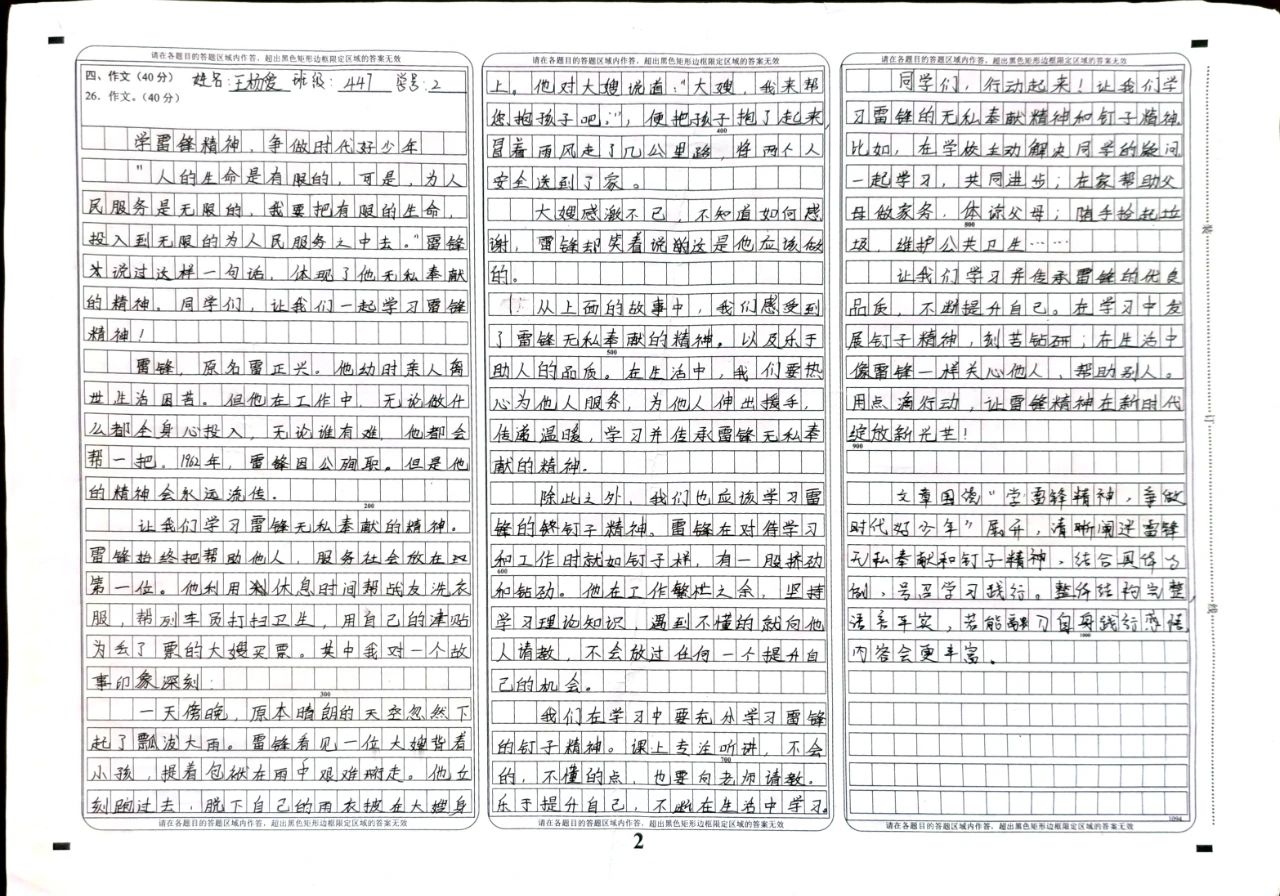 请在各题目的答题区域内作答，超出黑色矩形边框限定区域的答案无效
四、作文（40分） 姓名：王杨俊 班级：447 学号：2
26．作文。（40分）
学雷锋精神，争做时代好少年
"人的生命是有限的，可是，为人
民服务是无限的，我要把有限的生命，
投入到无限的为人民服务之中去。"雷锋
说过这样一句话，体现了他无私奉献
的精神。同学们，让我们一起学习雷锋
精神！
雷锋，原名雷正兴。他幼时亲人离
世生活困苦。但他在工作中，无论做什
么都全身心投入，无论谁有难，他都会
帮一把。1962年，雷锋因公殉职。但是他
的精神会永远流传。
200
让我们学习雷锋无私奉献的精神。
雷锋始终把帮助他人，服务社会放在
第一位。他利用休息时间帮战友洗衣
服，帮列车员打扫卫生，用自己的津贴
为丢了票的大嫂买票。其中我对一个故
事印象深刻：
300
一天傍晚，原本晴朗的天空忽然下
起了瓢泼大雨。雷锋看见一位大嫂背着
小孩，提着包袱在雨中艰难行走。他立
刻跑过去，脱下自己的雨衣披在大嫂身
请在各题目的答题区域内作答，超出黑色矩形边框限定区域的答案无效
请在各题目的答题区域内作答，超出黑色矩形边框限定区域的答案无效
上。他对大嫂说道："大嫂，我来帮
您抱孩子吧。"，便把孩子抱了起来，
400
冒着雨风走了几公里路，将两个人
安全送到了家。
大嫂感激不已，不知道如何感
谢，雷锋却笑着说这是他应该做
的。
从上面的故事中，我们感受到
了雷锋无私奉献的精神。以及乐于
500
助人的品质。在生活中，我们要热
心为他人服务，为他人伸出援手，
传递温暖，学习并传承雷锋无私奉
献的精神．
除此之外，我们也应该学习雷
锋的钉子精神。雷锋在对待学习
和工作时就如钉子样，有一股挤劲
600
和钻劲。他在工作繁忙之余，坚持
学习理论知识，遇到不懂的就向他
人请教，不会放过任何一个提升自
己的机会。
我们在学习中要充分学习雷锋
的钉子精神。课上专注听讲，不会
700
的，不懂的点，也要向老师请教。
乐于提升自己，不断在生活中学习。
请在各题目的答题区域内作答，超出黑色矩形边框限定区域的答案无效
请在各题目的答题区域内作答，超出黑色矩形边框限定区域的答案无效
同学们，行动起来！让我们学
习雷锋的无私奉献精神和钉子精神．
比如，在学校主动解决同学的疑问
一起学习，共同进步；在家帮助父
母做家务，体谅父母；随手捡起垃
800
圾，维护公共卫生……
让我们学习并传承雷锋的优良
品质，不断提升自己。在学习中发
展钉子精神，刻苦钻研；在生活中
像雷锋一样关心他人，帮助别人。
用点滴行动，让雷锋精神在新时代
绽放新光芒！
900
文章围绕"学雷锋精神，争做
时代好少年"展开，清晰阐述雷锋
无私奉献和钉子精神，结合具体事
例，号召学习践行。整体结构完整，
语言平实，若能融入自身践行感悟，
1000
内容会更丰富。
1094
请在各题目的答题区域内作答，超出黑色矩形边框限定区域的答案无效
装
订
线
2